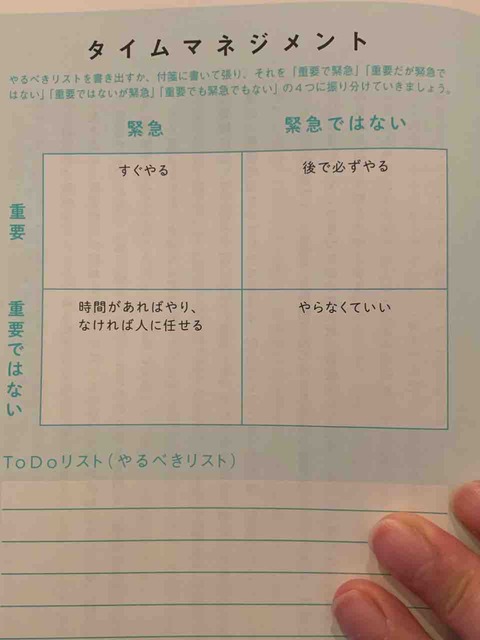 タイムマネジメント
やるべきリストを書き出すか、付箋に書いて張り、それを「重要で緊急」「重要だが緊急で
はない」「重要ではないが緊急」「重要でも緊急でもない」の４つに振り分けていきましょう。
緊急
緊急ではない
重要
すぐやる
後で必ずやる
重要ではない
時間があればやり、
なければ人に任せる
やらなくていい
ToDoリスト（やるべきリスト）